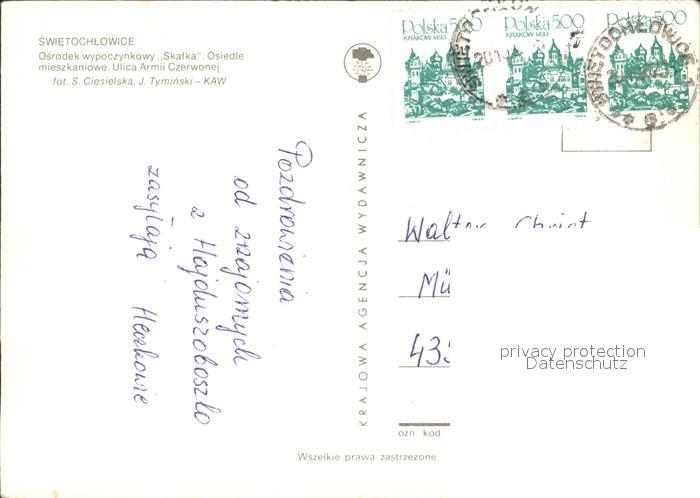 ŚWIĘTOCHŁOWICE
Ośrodek wypoczynkowy „Skałka". Osiedle
mieszkaniowe. Ulica Armii Czerwonej
fot. S. Ciesielska, J. Tymiński – KAW
Pozdrowienia
od znajomych
z Hajduszoboszlo
zasyłają Heczkowie
KRAJOWA AGENCJA WYDAWNICZA
Polska 500
KRAKÓW 1493
Polska 5.00
KRAKÓW 1493
Polska 500
ŚWIĘTOCHŁOWICE
Walter Christ
Mü
435
privacy protection
Datenschutz
ozn. kod.
Wszelkie prawa zastrzeżone